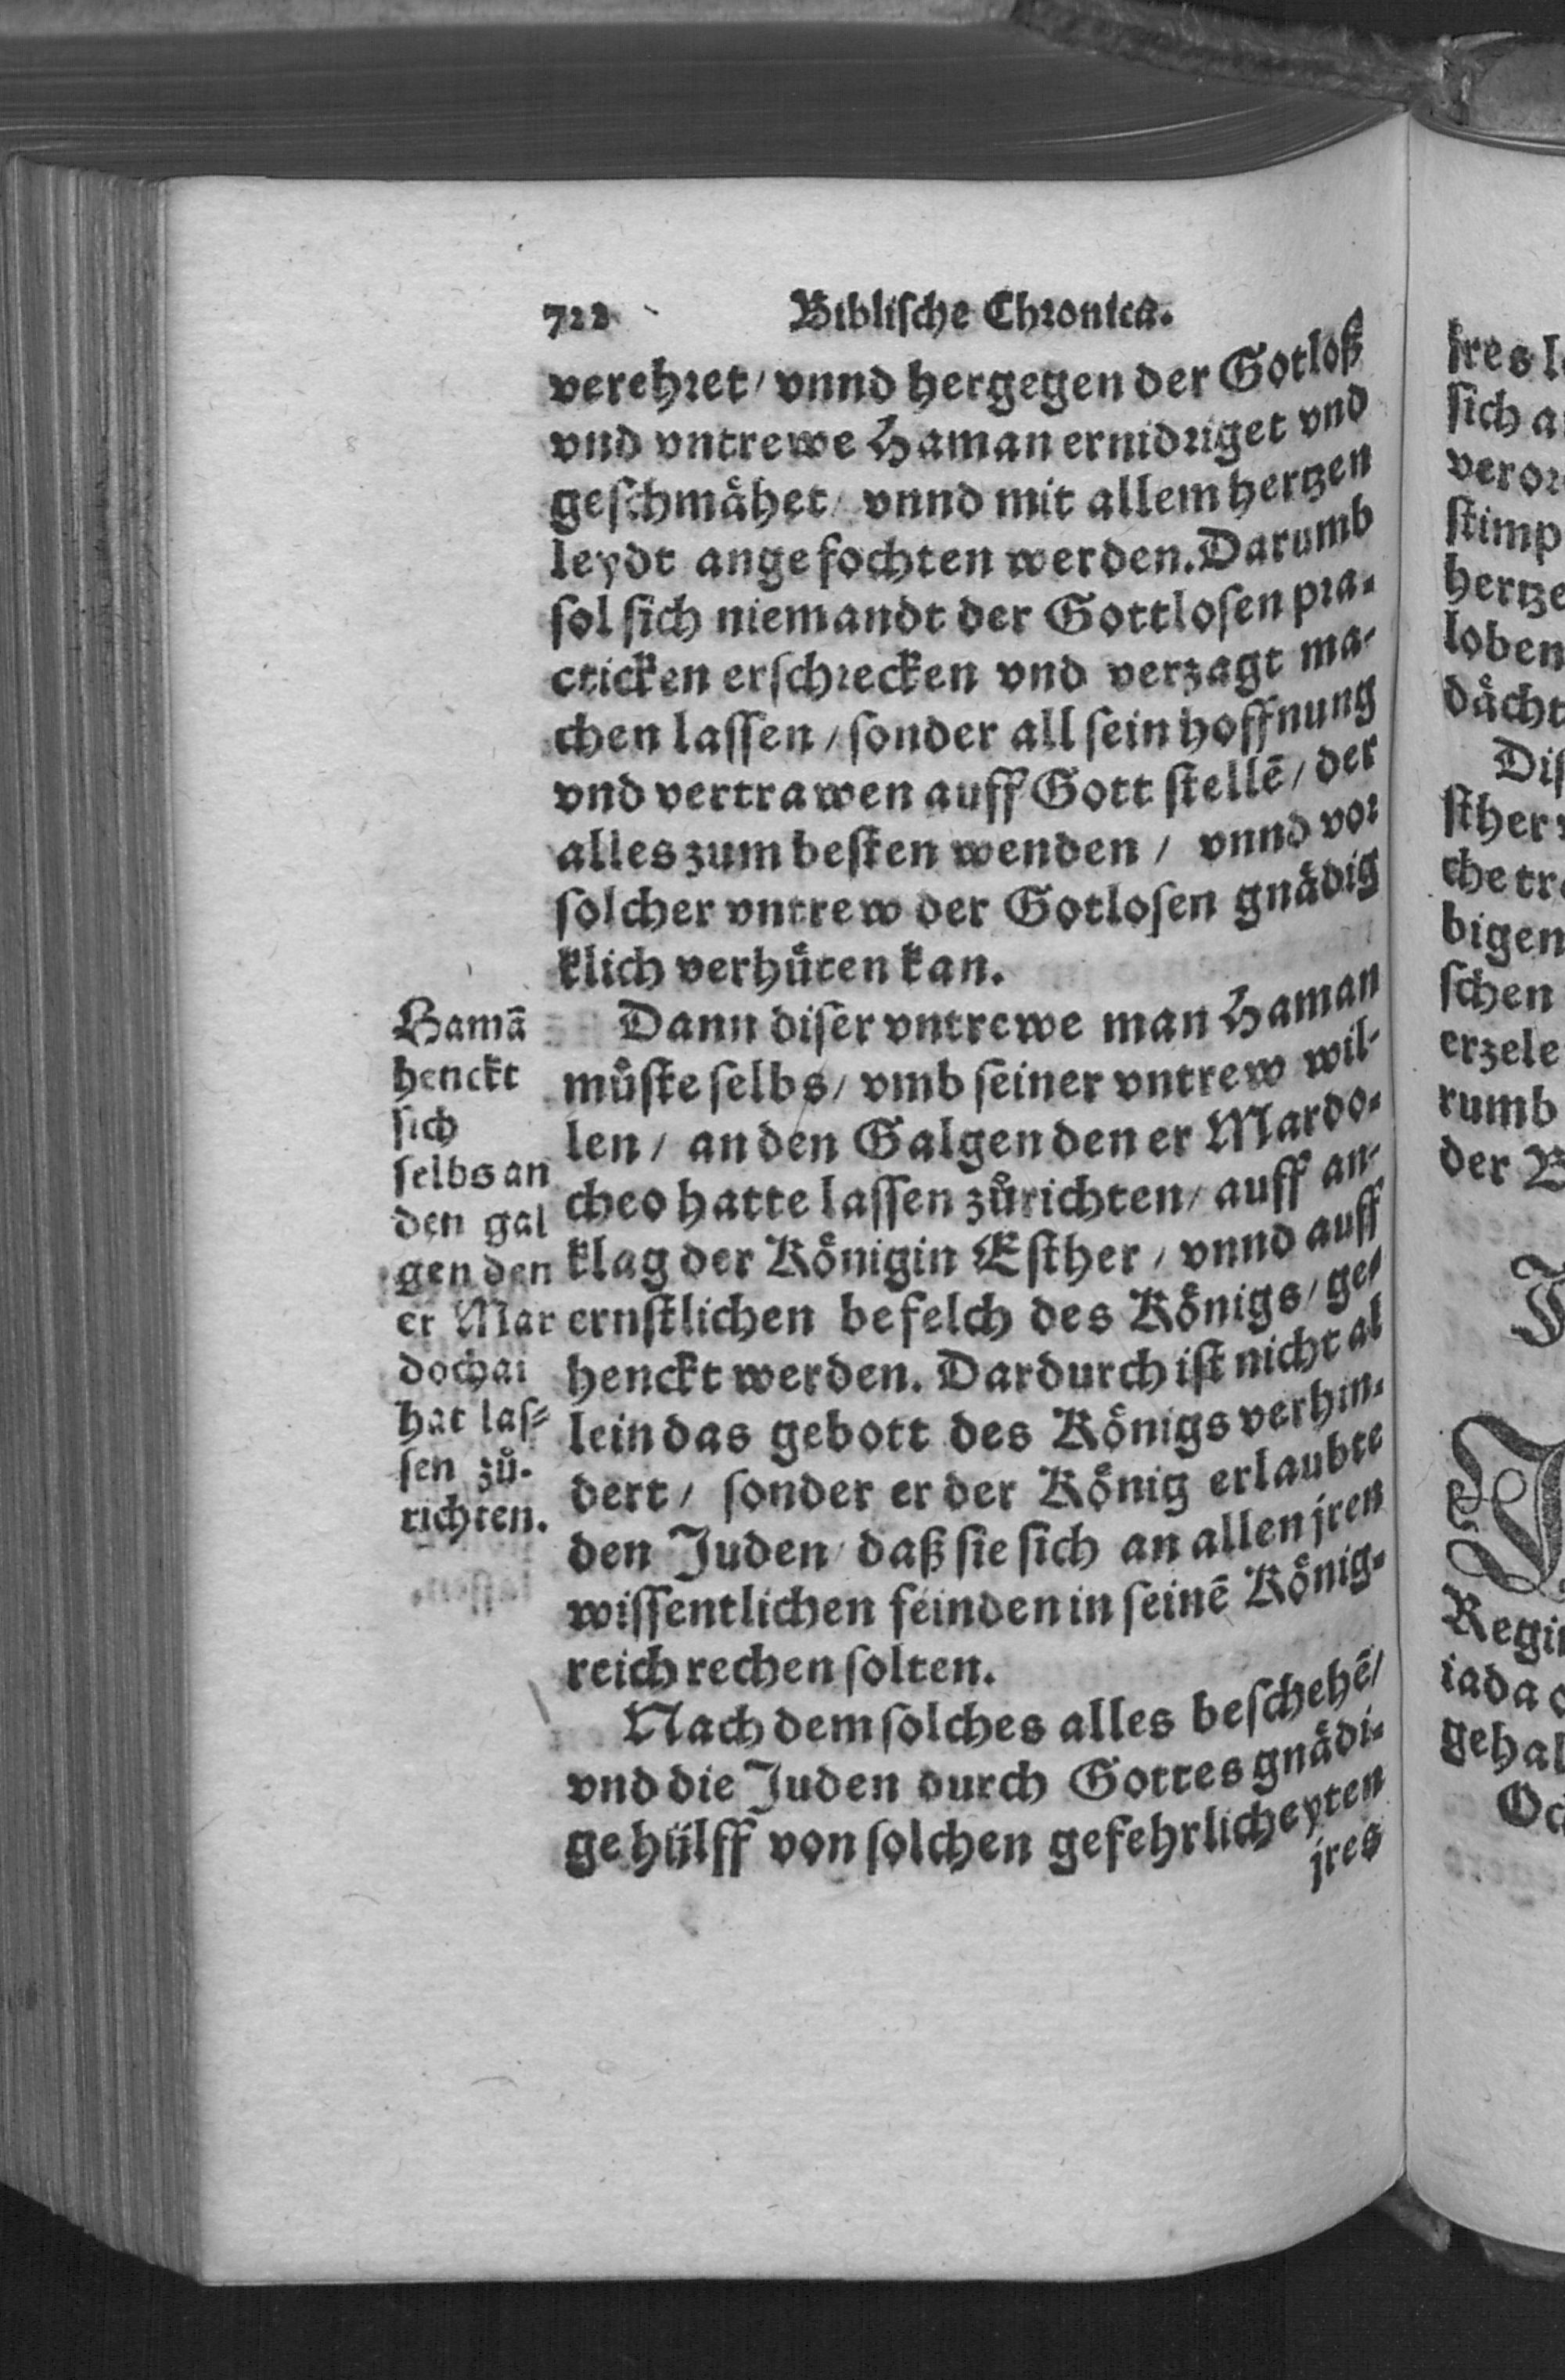 722 Biblische Chronica.
verehret / vnnd hergegen der Gotloß
vnd vntrewe Haman ernidriget vnd
geschmåhet / vnnd mit allem hertzen
leydt angefochten werden. Darumb
sol sich niemandt der Gottlosen pra-
cticken erschrecken vnd verzagt ma-
chen lassen / sonder all sein hoffnung
vnd vertrawen auff Gott stellẽ / der
alles zum besten wenden / vnnd vor
solcher vntrew der Gotlosen gnådig
klich verhůten kan.
Dann diser vntrewe man Haman
můste selbs / vmb seiner vntrew wil-
len / an den Galgen den er Mardo-
cheo hatte lassen zůrichten / auff an-
klag der Kônigin Esther / vnnd auff
ernstlichen befelch des Kônigs / ge-
henckt werden. Dardurch ist nicht al
lein das gebott des Kônigs verhin-
dert / sonder er der Kônig erlaubte
den Juden / daß sie sich an allen jren
wissentlichen feinden in seinẽ Kônig-
reich rechen solten.
Nach dem solches alles beschehẽ /
vnd die Juden durch Gottes gnådi-
ge hülff von solchen gefehrlicheyten
jres
Hamã
henckt
sich
selbs an
den gal
gen den
er Mar
dochai
hat las-
sen zů-
richten.
sich a
stimp
hertze
loben
dåcht
Dis
sther
che tr
bigen
schen
erzele
rumb
der B
Regi
iada
gehal